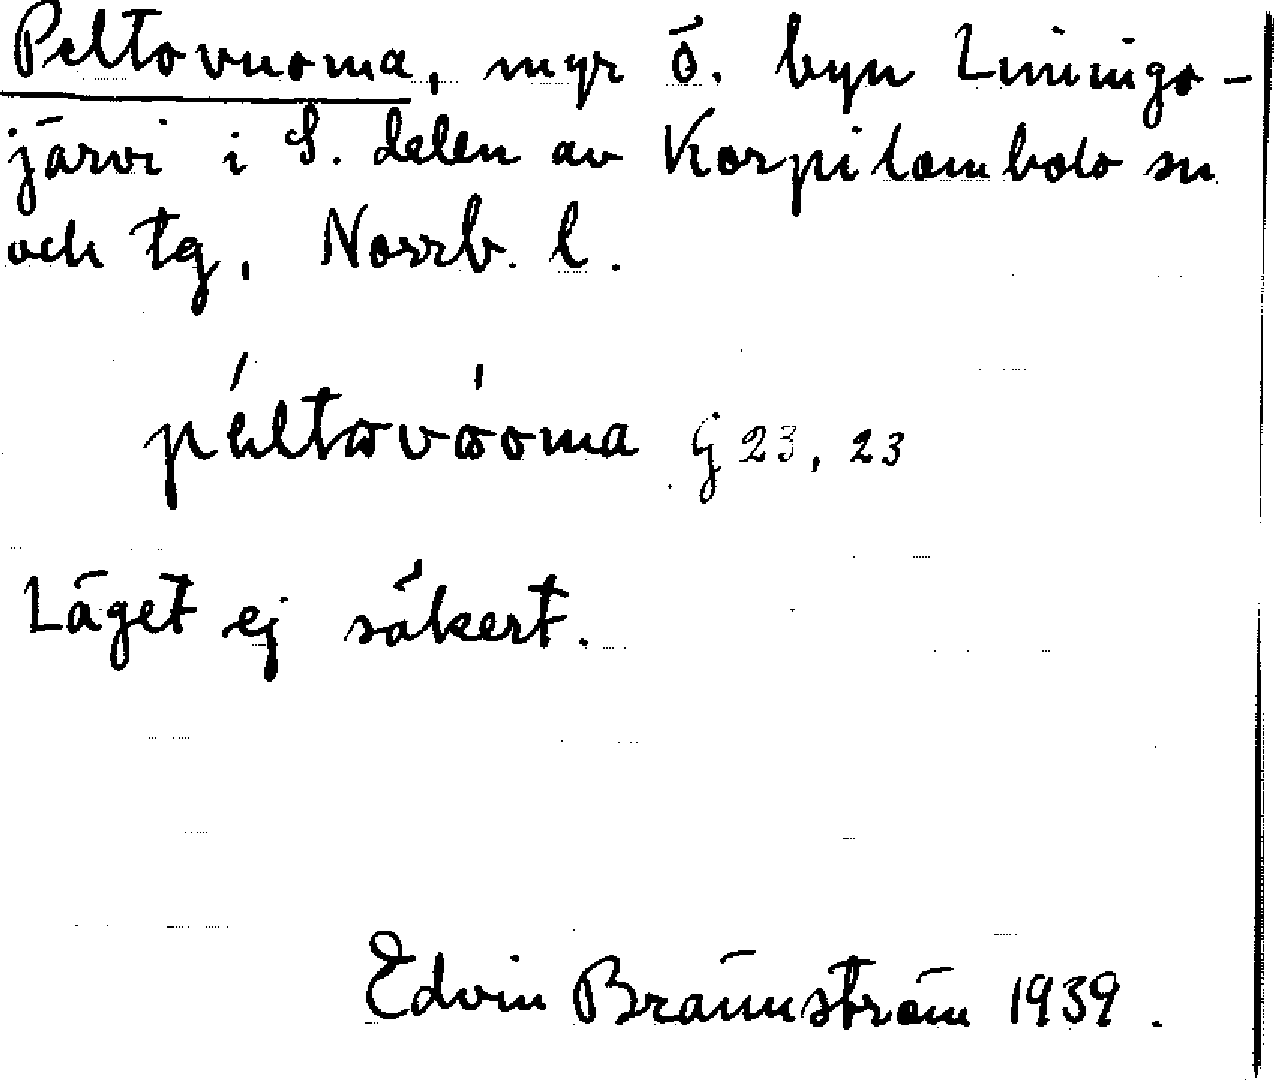 Peltovuoma, myr ö. byn Liviingo-
järvi i S. delen av Korpilombolo sn
och tg, Norrb. l.
péltɷvɷ́oma G 23, 23
Läget ej säkert.
Edvin Brännström 1939.